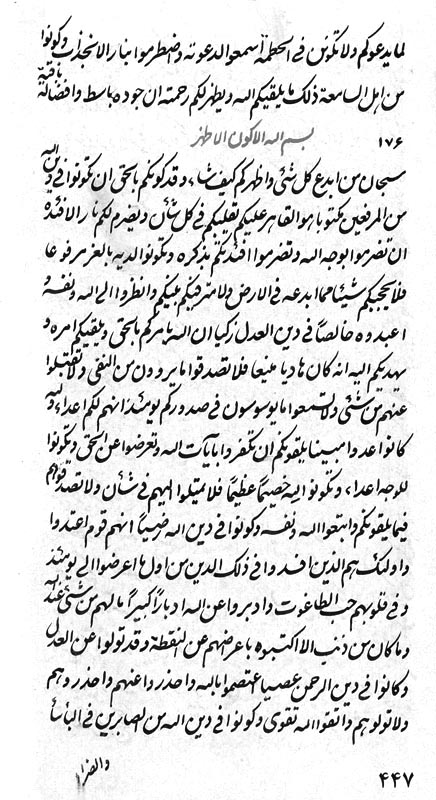 لما يدعوكم ولا تكونن في الحطمة اسمعوا لدعوته واضطرموا بنار الانجذاب وكونوا
من اهل السامعة ذلك ما يلقيكم الله ويظهر لكم رحمته ان جوده باسط وافضاله باقية
١٧۶ بسم الله الاكون الاطهر
سبحان من ابدع كل شئ واظهركم كيف شاء وقد كونكم بالحق ان كونوا في دين الله
من المرفعين مكتوبا هو القاهر عليكم تقليبكم في كل شأن ويضرم لكم نار الافئدة
ان تضرموا بوجه الله وتضرموا افئدتكم بذكره وتكونوا لديه بالعز مرفوعا
فلا يحجبكم شيئا مما ابدعه في الارض ولا تفرقكم بينكم وانظروا الى الله ونفسه و
اعبدوه خالصا في دين العدل زكيا ان الله يامركم بالحق ويلقيكم امره و
يهديكم اليه انه كان هاديا منيعا فلا تصدقوا ما يروون من النفي ولا تقبلوا
عنهم من شئ ولا تسمعوا ما يوسوسون في صدوركم يومئذ انهم لكم اعداء واليه
كانوا عدوا مبينا يلقونكم ان تكفروا بايات الله وتعرضوا عن الحق وتكونوا
للوجه اعداء وتكونوا اليه خصيما عظيما فلا تميلوا اليهم في شأن ولا تصدقواهم
فيما يلقونكم واتبعوا الله ونفسه وكونوا في دين الله رضيا انهم قوم اعتدوا
واولئك هم الذين افسدوا في ذلك الدين من اولها اعرضوا الى يومئذ
وفي قلوبهم حب الطاغوت وادبروا عن الله ادبارا كبيرا ما لهم من شئ عند الله
وما كان من ذنب الا اكتسبوه باعراضهم عن النقطة وقد تولوا عن العدل
وكانوا في دين الرحمن عصيا اعتصموا بالله واحذروا عنهم واحذروهم
ولا تولوهم واتقوا الله تقوى وكونوا في دين الله من الصابرين في البأساء
والضراء
۴۴٧